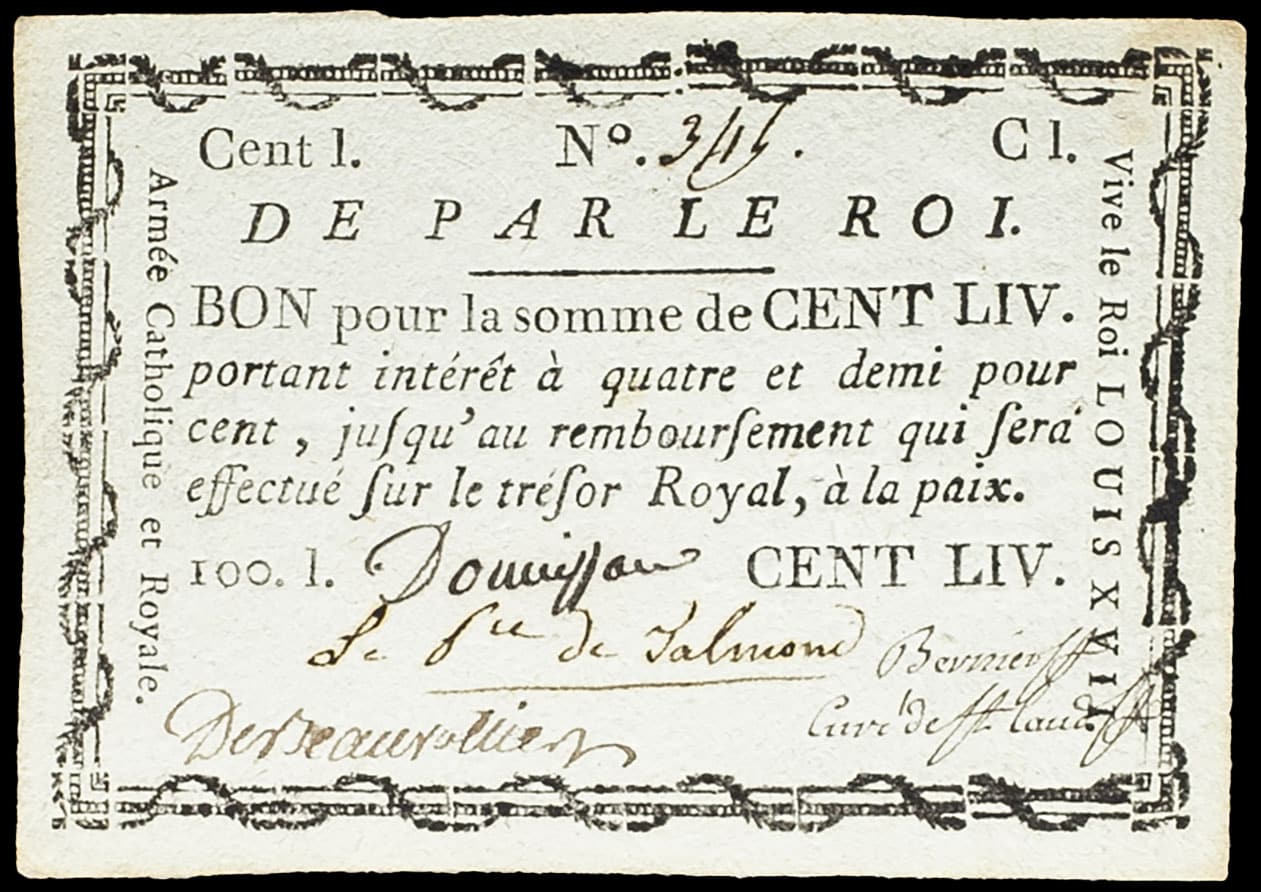 Cent l. Nº. 345. C l.
DE PAR LE ROI.
BON pour la somme de CENT LIV.
portant intérêt à quatre et demi pour
cent, juſqu'au rembourſement qui ſera
effectué ſur le tréſor Royal, à la paix.
100. l. Donnissan CENT LIV.
Le Pce de Talmond
Bernier
DesBeauvolliers
Curé de St Laud
Armée Catholique et Royale.
Vive le Roi LOUIS XVII